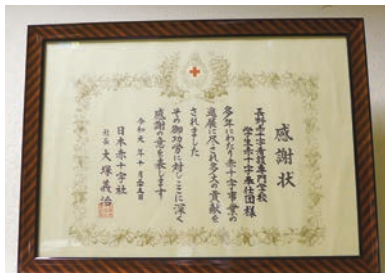 感謝状
長野赤十字看護専門学校
学生赤十字奉仕団様
多年にわたり赤十字事業の
進展に尽され多大の貢献を
されました
その御功労に対しここに深く
感謝の意を表します
令和元年十月
日本赤十字社
社長 大塚義治